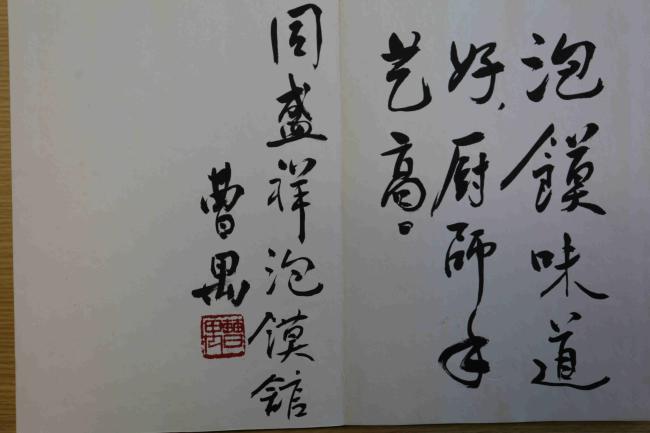 泡馍味道
好，厨师手
艺高。
同盛祥泡馍馆
曹禺
曹禺